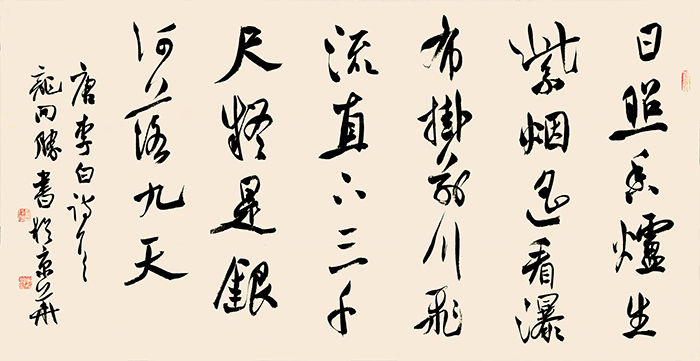 日照香爐生
紫烟遥看瀑
布掛前川飛
流直下三千
尺疑是銀
河落九天
唐李白詩一首
龍開勝書於京華